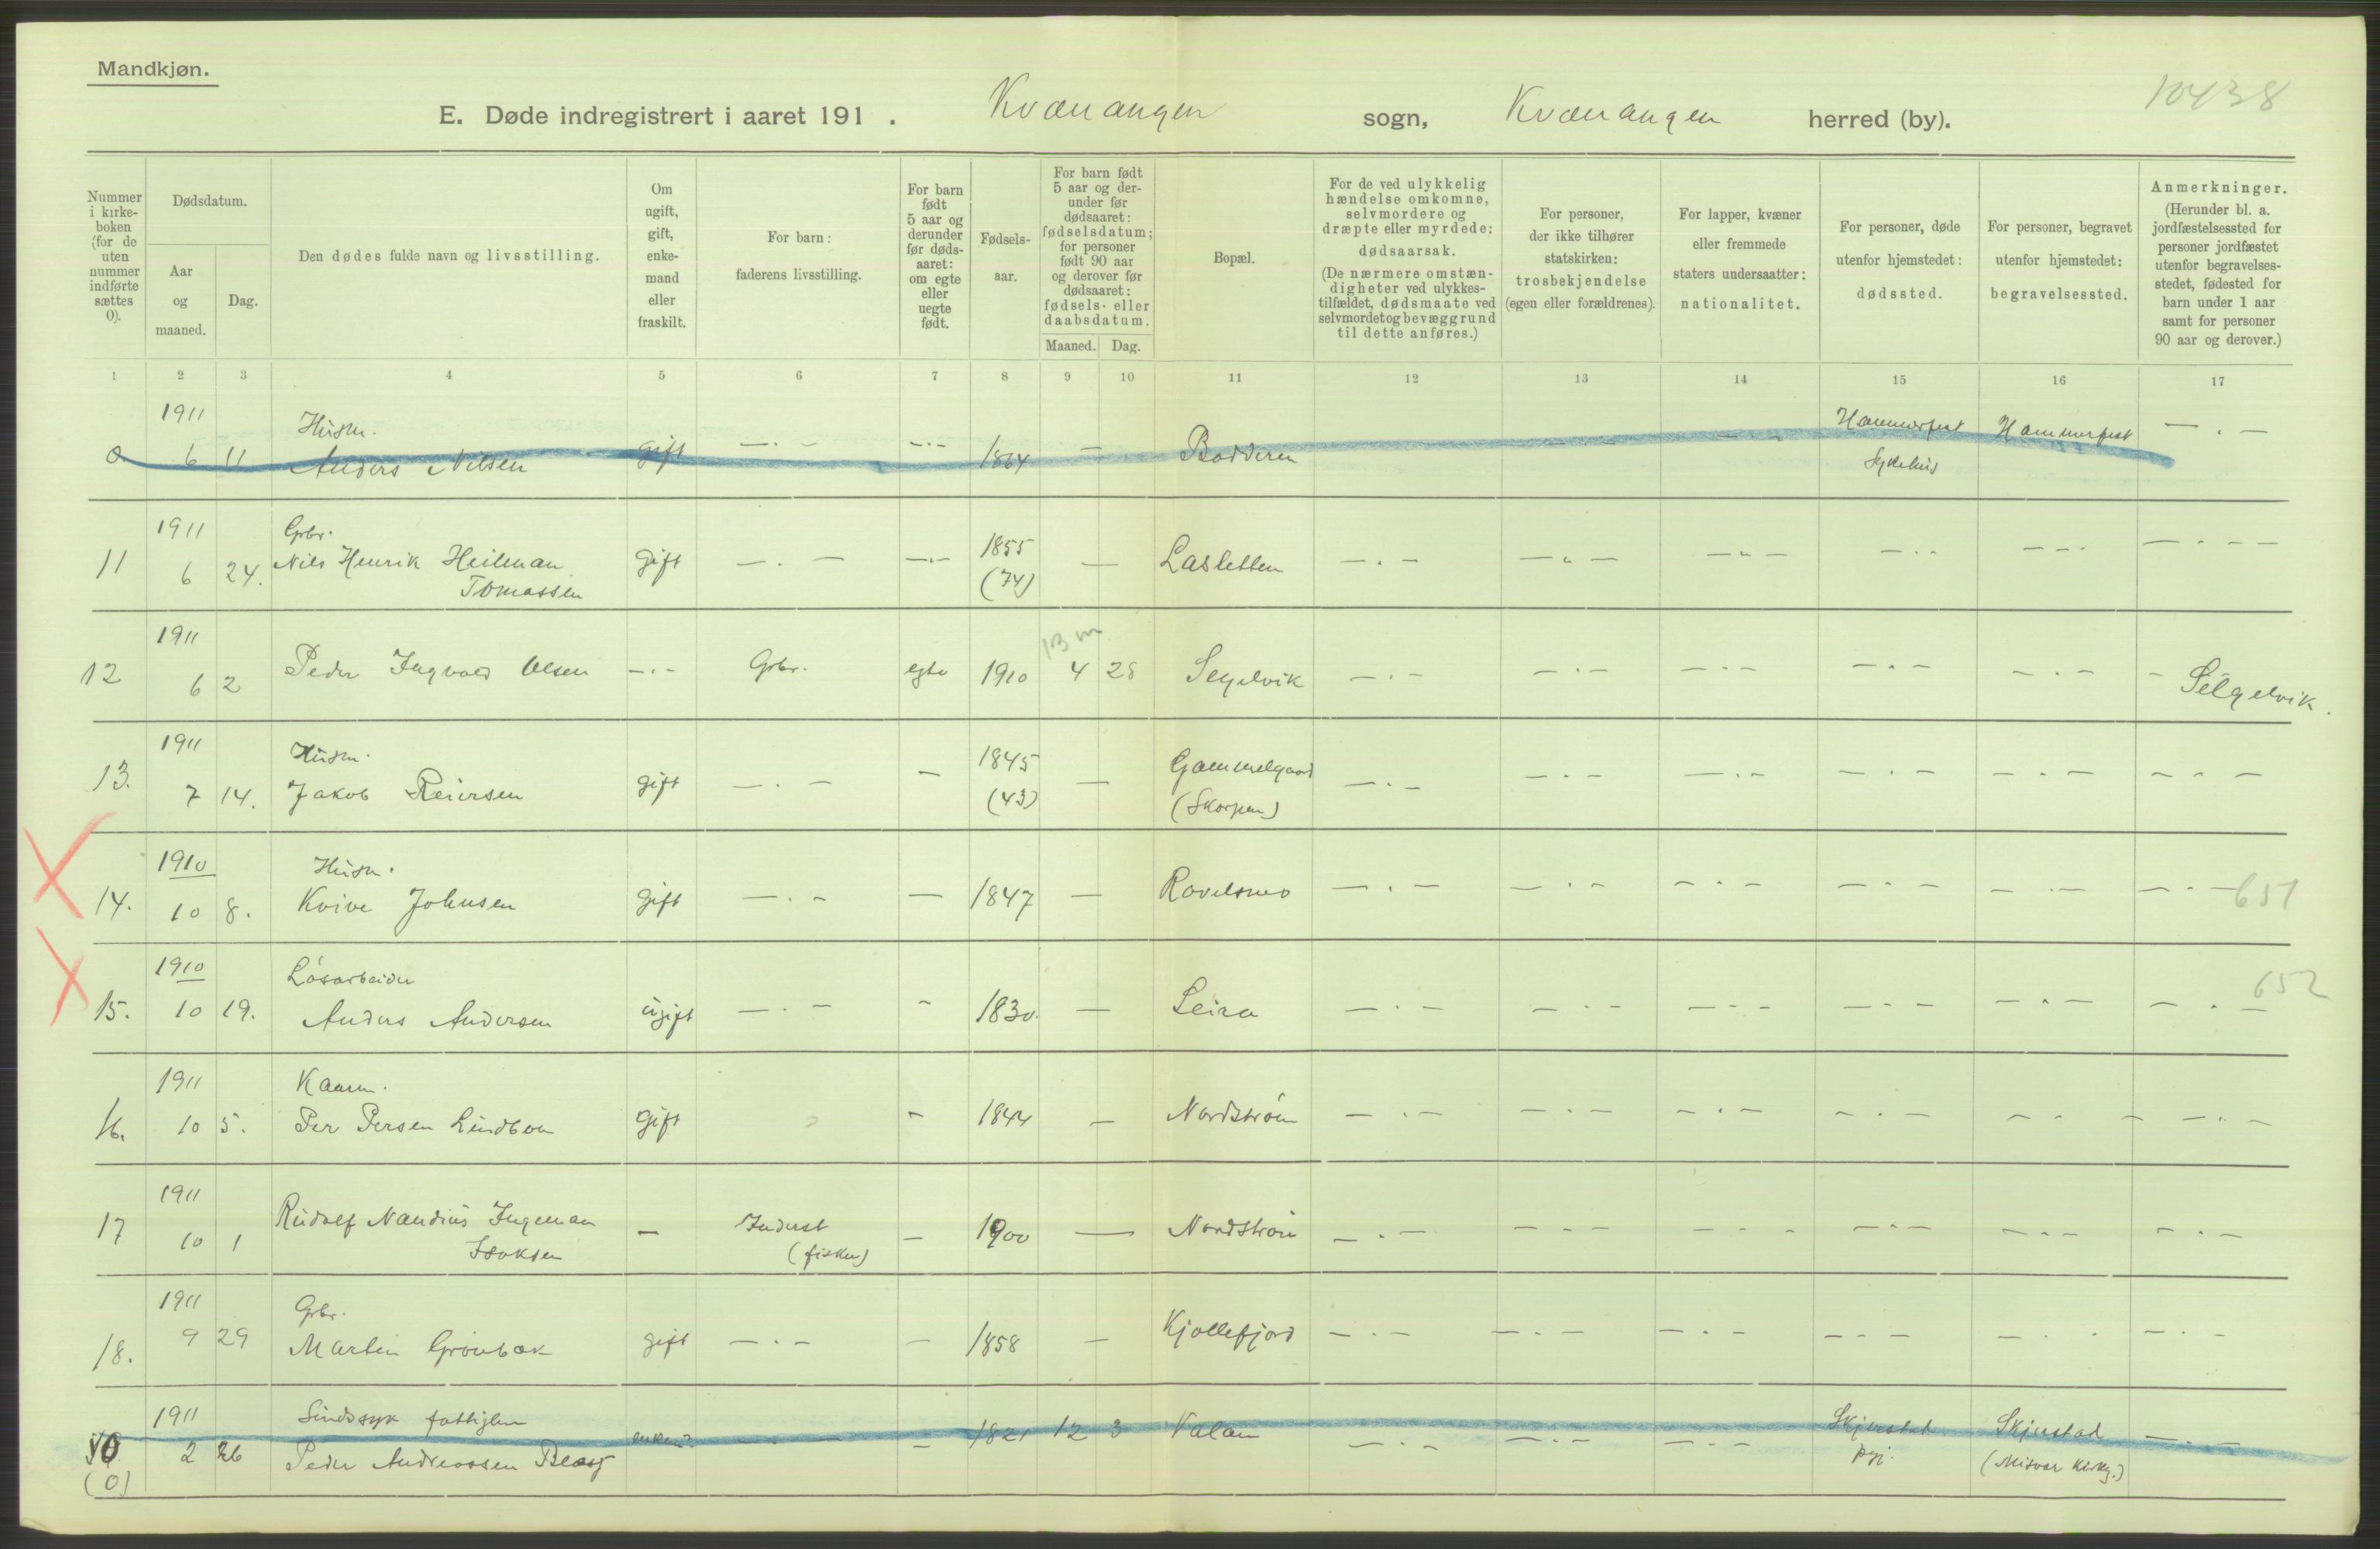 Mandkjøn.
10438
E. Døde indregistrert i aaret 191 . Kvænangen sogn, Kvænangen herred (by).
Nummer i kirke- boken (for de uten nummer indførte sættes 0).
Dødsdatum.
Aar og maaned.
Dag.
Den dødes fulde navn og livsstilling.
Om ugift, gift, enke- mand eller fraskilt.
For barn: faderens livsstilling.
For barn født 5 aar og derunder før døds- aaret: om egte eller uegte født.
Fødsels- aar.
For barn født 5 aar og der- under før dødsaaret: fødselsdatum; for personer født 90 aar og derover før dødsaaret: fødsels- eller daabsdatum.
Maaned. Dag.
Bopæl.
For de ved ulykkelig hændelse omkomne, selvmordere og dræpte eller myrdede; dødsaarsak. (De nærmere omstæn- digheter ved ulykkes- tilfældet, dødsmaate ved selvmordet og bevæggrund til dette anføres.)
For personer, der ikke tilhører statskirken: trosbekjendelse (egen eller forældrenes).
For lapper, kvæner eller fremmede staters undersaatter: nationalitet.
For personer, døde utenfor hjemstedet: dødssted.
For personer, begravet utenfor hjemstedet: begravelsessted.
Anmerkninger. (Herunder bl. a. jordfæstelsessted for personer jordfæstet utenfor begravelses- stedet, fødested for barn under 1 aar samt for personer 90 aar og derover.)
1 2 3 4 5 6 7 8 9 10 11 12 13 14 15 16 17
1911 Husm. Hammerfest Hammerfest — . —
0. 6 11 Anders Nilsen gift — . — — . — 1864 — Badderen Sykehus
1911 Grbr. 1855
11 6 24. Nils Henrik Heilman gift — . — — . — (74) — Lasletten — . — — . — — . — — . — — . — — . —
Tomassen
1911 13 m
12 6 2 Peder Ingvald Olsen — . — Grbr. egte 1910 4 28 Segelvik — . — — . — — . — — . — — . — — Segelvik.
1911 Husm. 1845 Gammelgaard
13. 7 14. Jakob Reiersen gift — . — — (43) — (Skorpen) — . — — . — — . — — . — — . — — . —
1910 Husm.
14. 10 8. Kvive Johnsen gift — . — — 1847 — — . — — . — — . — — . — — . — — . — 651
1910 Løsarbeider
15. 10 19. Anders Andersen ugift — . — — 1830. — Leira — . — — . — — . — — . — — . — — . — 652
1911 Kaarm.
16. 10 5. Per Persen Lindboen gift — 1844 — Nordstrøm — . — — . — — . — — . — — . — — . —
1911
17 10 1 Rudolf Nandius Ingeman — Inderst — 1900 — Nordstrøm — . — — . — — . — — . — — . — — . —
Isaksen (fisker)
1911 Grbr.
18. 9 29 Martin Grønbæk gift — . — — 1858 — Kjøllefjord — . — — . — — . — — . — — . — — . —
1911 Sindssyk fattiglem Skjerstad Skjerstad — . —
0 2 26 Peder Andreassen enkem. — — 1821 12 3 Valan — . — — . — — . — pgj. (Misvær kirkg.)
(0)